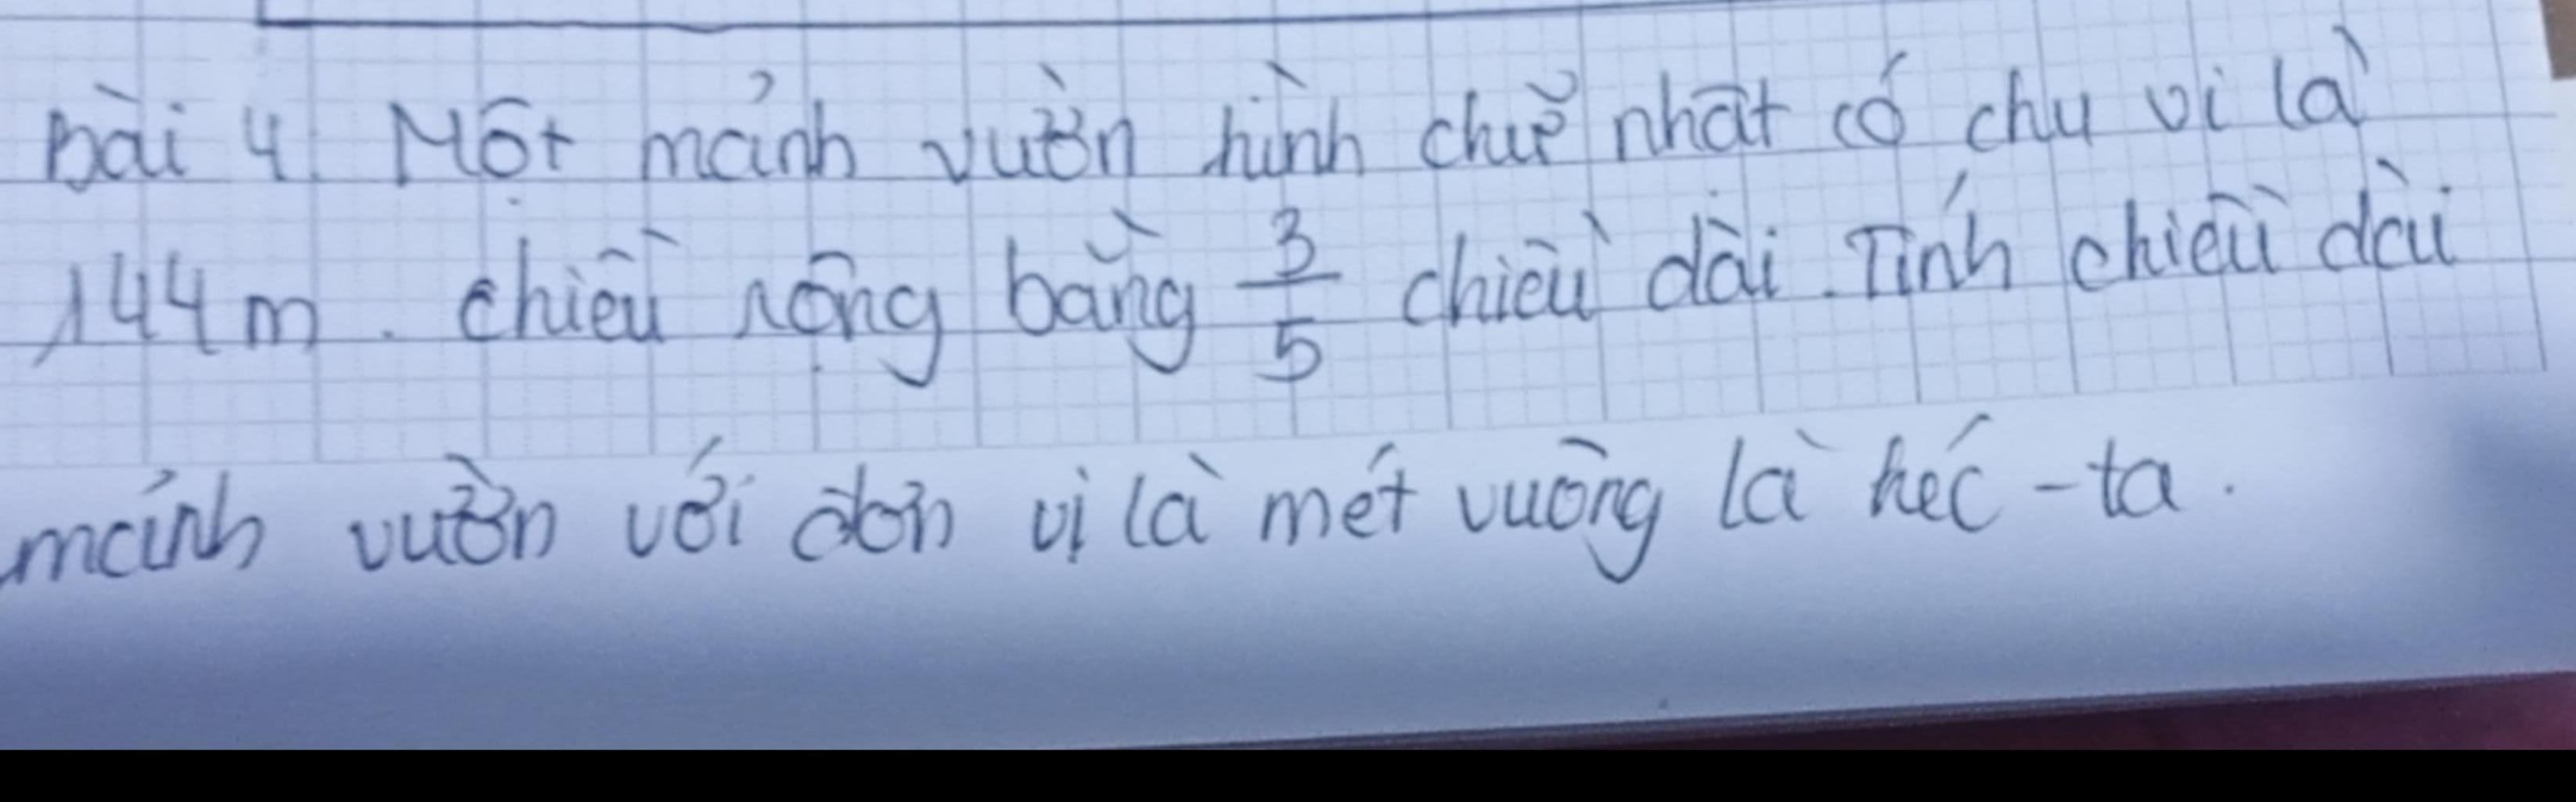 Bài 4. Một mảnh vườn hình chữ nhật có chu vi là
144m. chiều rộng bằng \frac{3}{5} chiều dài. Tính chiều dài
mảnh vườn với đơn vị là mét vuông là héc-ta.